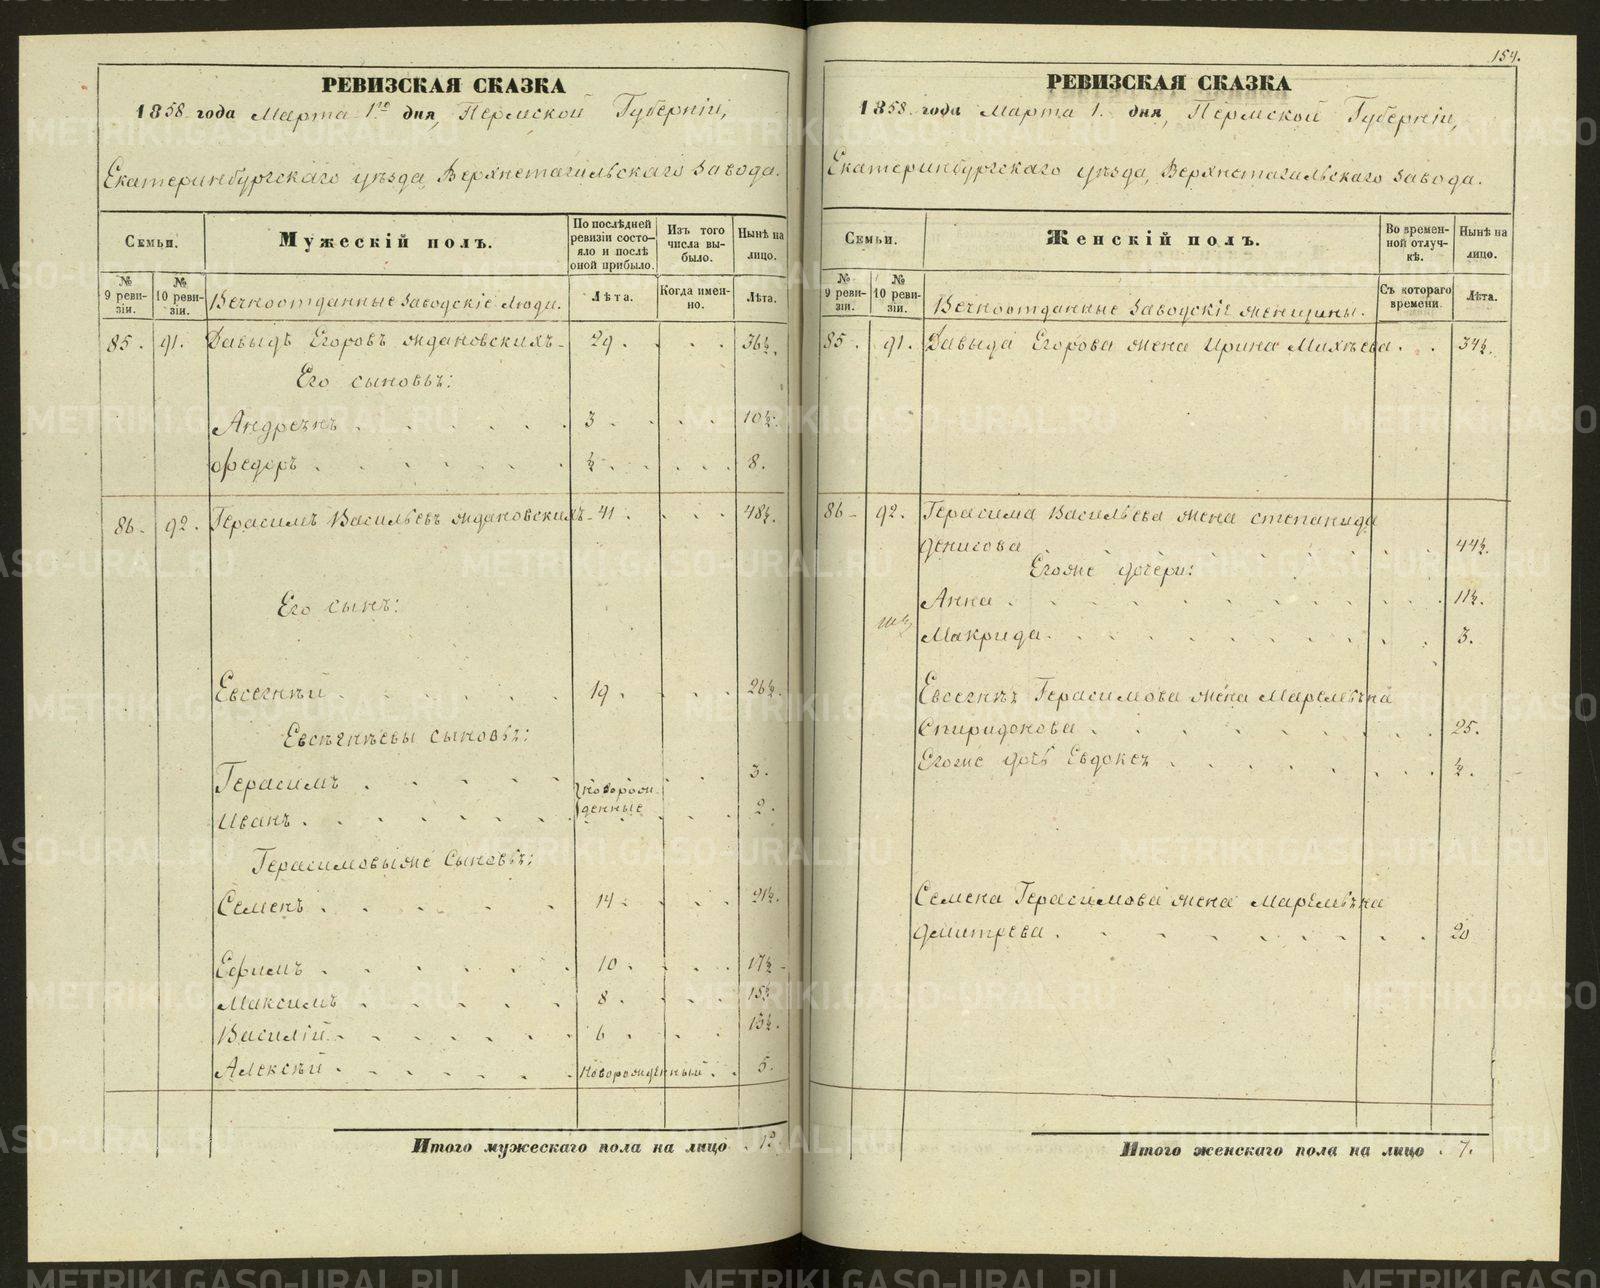 РЕВИЗСКАЯ СКАЗКА
1858 года Марта 1го дня, Пермской Губернiи,
Екатеринбургскаго уѣзда, Верхнетагильскаго завода.
Семьи. Мужескiй полъ. По послѣдней ревизiи состо-яло и послѣ оной прибыло. Изъ того числа вы-было. Нынѣ на лицо.
№ 9 реви-зiи. № 10 реви-зiи. Вечноотданные заводскiе люди. Лѣта. Когда имен-но. Лѣта.
85. 91. Давыдъ Егоровъ Ждановскихъ 29. 36½.
Его сыновья:
Андреянъ 3. 10½.
Федоръ ½. 8.
86. 92. Герасимъ Васильевъ Ждановскихъ 41. 48½.
Его сынъ:
Евсегнѣй 19. 26½.
Евсѣгнѣевы сыновья:
Герасимъ новорож- 3.
Иванъ денные 2.
Герасимовы же сыновья:
Семенъ 14. 21½.
Ефимъ 10. 17½.
Максимъ 8. 15½.
Василiй 6. 13½.
Алексѣй новорожденный 5.
Итого мужескаго пола на лицо 12.
154.
РЕВИЗСКАЯ СКАЗКА
1858 года Марта 1. дня, Пермской Губернiи,
Екатеринбургскаго уѣзда, Верхнетагильскаго завода.
Семьи. Женскiй полъ. Во времен-ной отлуч-кѣ. Нынѣ на лицо.
№ 9 реви-зiи. № 10 реви-зiи. Вечноотданные заводскiе женщины. Съ котораго времени. Лѣта.
85. 91. Давыда Егорова жена Ирина Михѣева 34½.
86. 92. Герасима Васильева жена Степанида
Денисова 44½.
Его же дочери:
Анна 11½.
Макрида 3.
Евсегнѣя Герасимова жена Маремьяна
Спиридонова 25.
Его же дочь Евдокея ½.
Семена Герасимова жена Маремьяна
Дмитрева 20
Итого женскаго пола на лицо 7.
METRIKI.GASO-URAL.RU